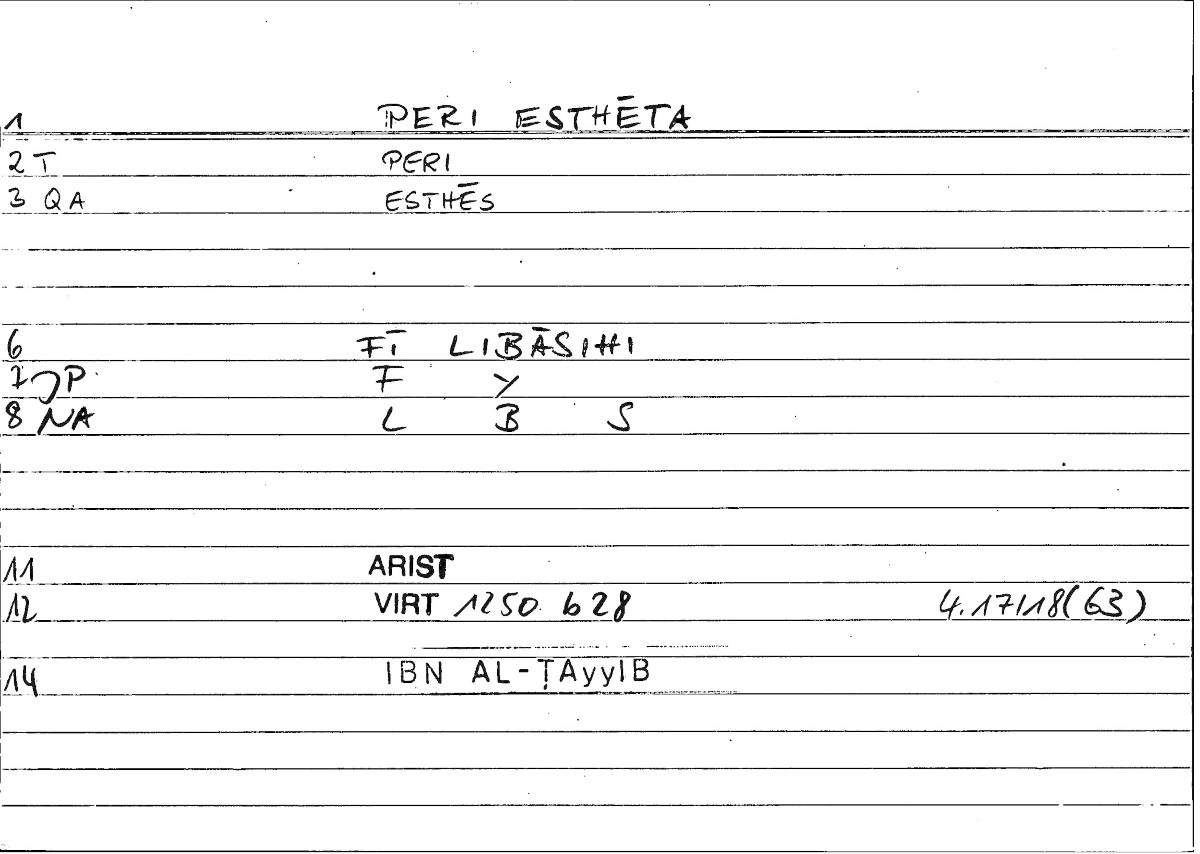 1 PERI ESTHĒTA
2 T PERI
3 QA ESTHĒS
6 FĪ LIBĀSIHI
7 JP F Y
8 NA L B S
11 ARIST
12 VIRT 1250 b28 4.17/18(63)
14 IBN AL-ṬAyyIB